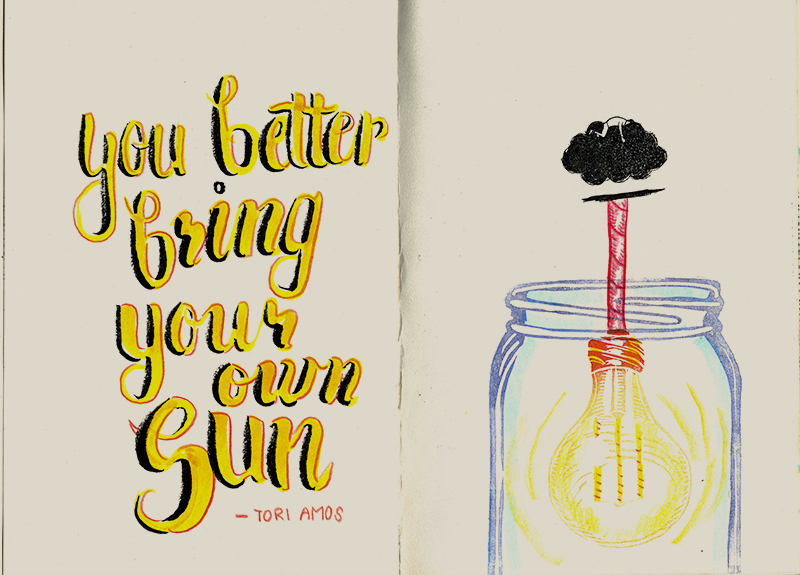 you better
bring
your
own
Sun
- TORI AMOS